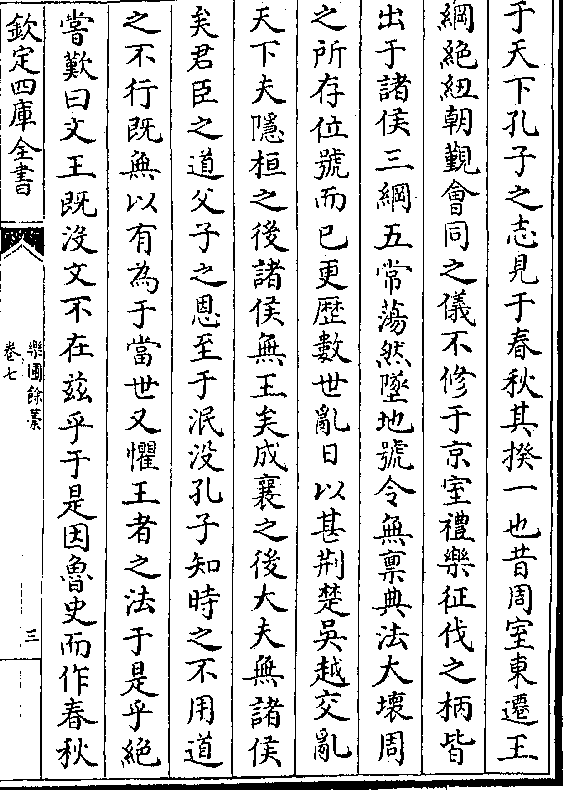 于天下孔子之志見于春秋其揆一也昔周室東遷王
綱絶紐朝覲會同之儀不修于京室禮樂征伐之柄皆
出于諸侯三綱五常蕩然墜地號令無禀典法大壞周
之所存位號而已更歴數世亂日以甚荆楚吳越交亂
天下夫隱桓之後諸侯無王矣成襄之後大夫無諸侯
矣君臣之道父子之恩至于泯没孔子知時之不用道
之不行既無以有為于當世又懼王者之法于是乎絶
嘗歎曰文王既没文不在兹乎于是因魯史而作春秋
欽定四庫全書
樂圃餘藁
卷七
三